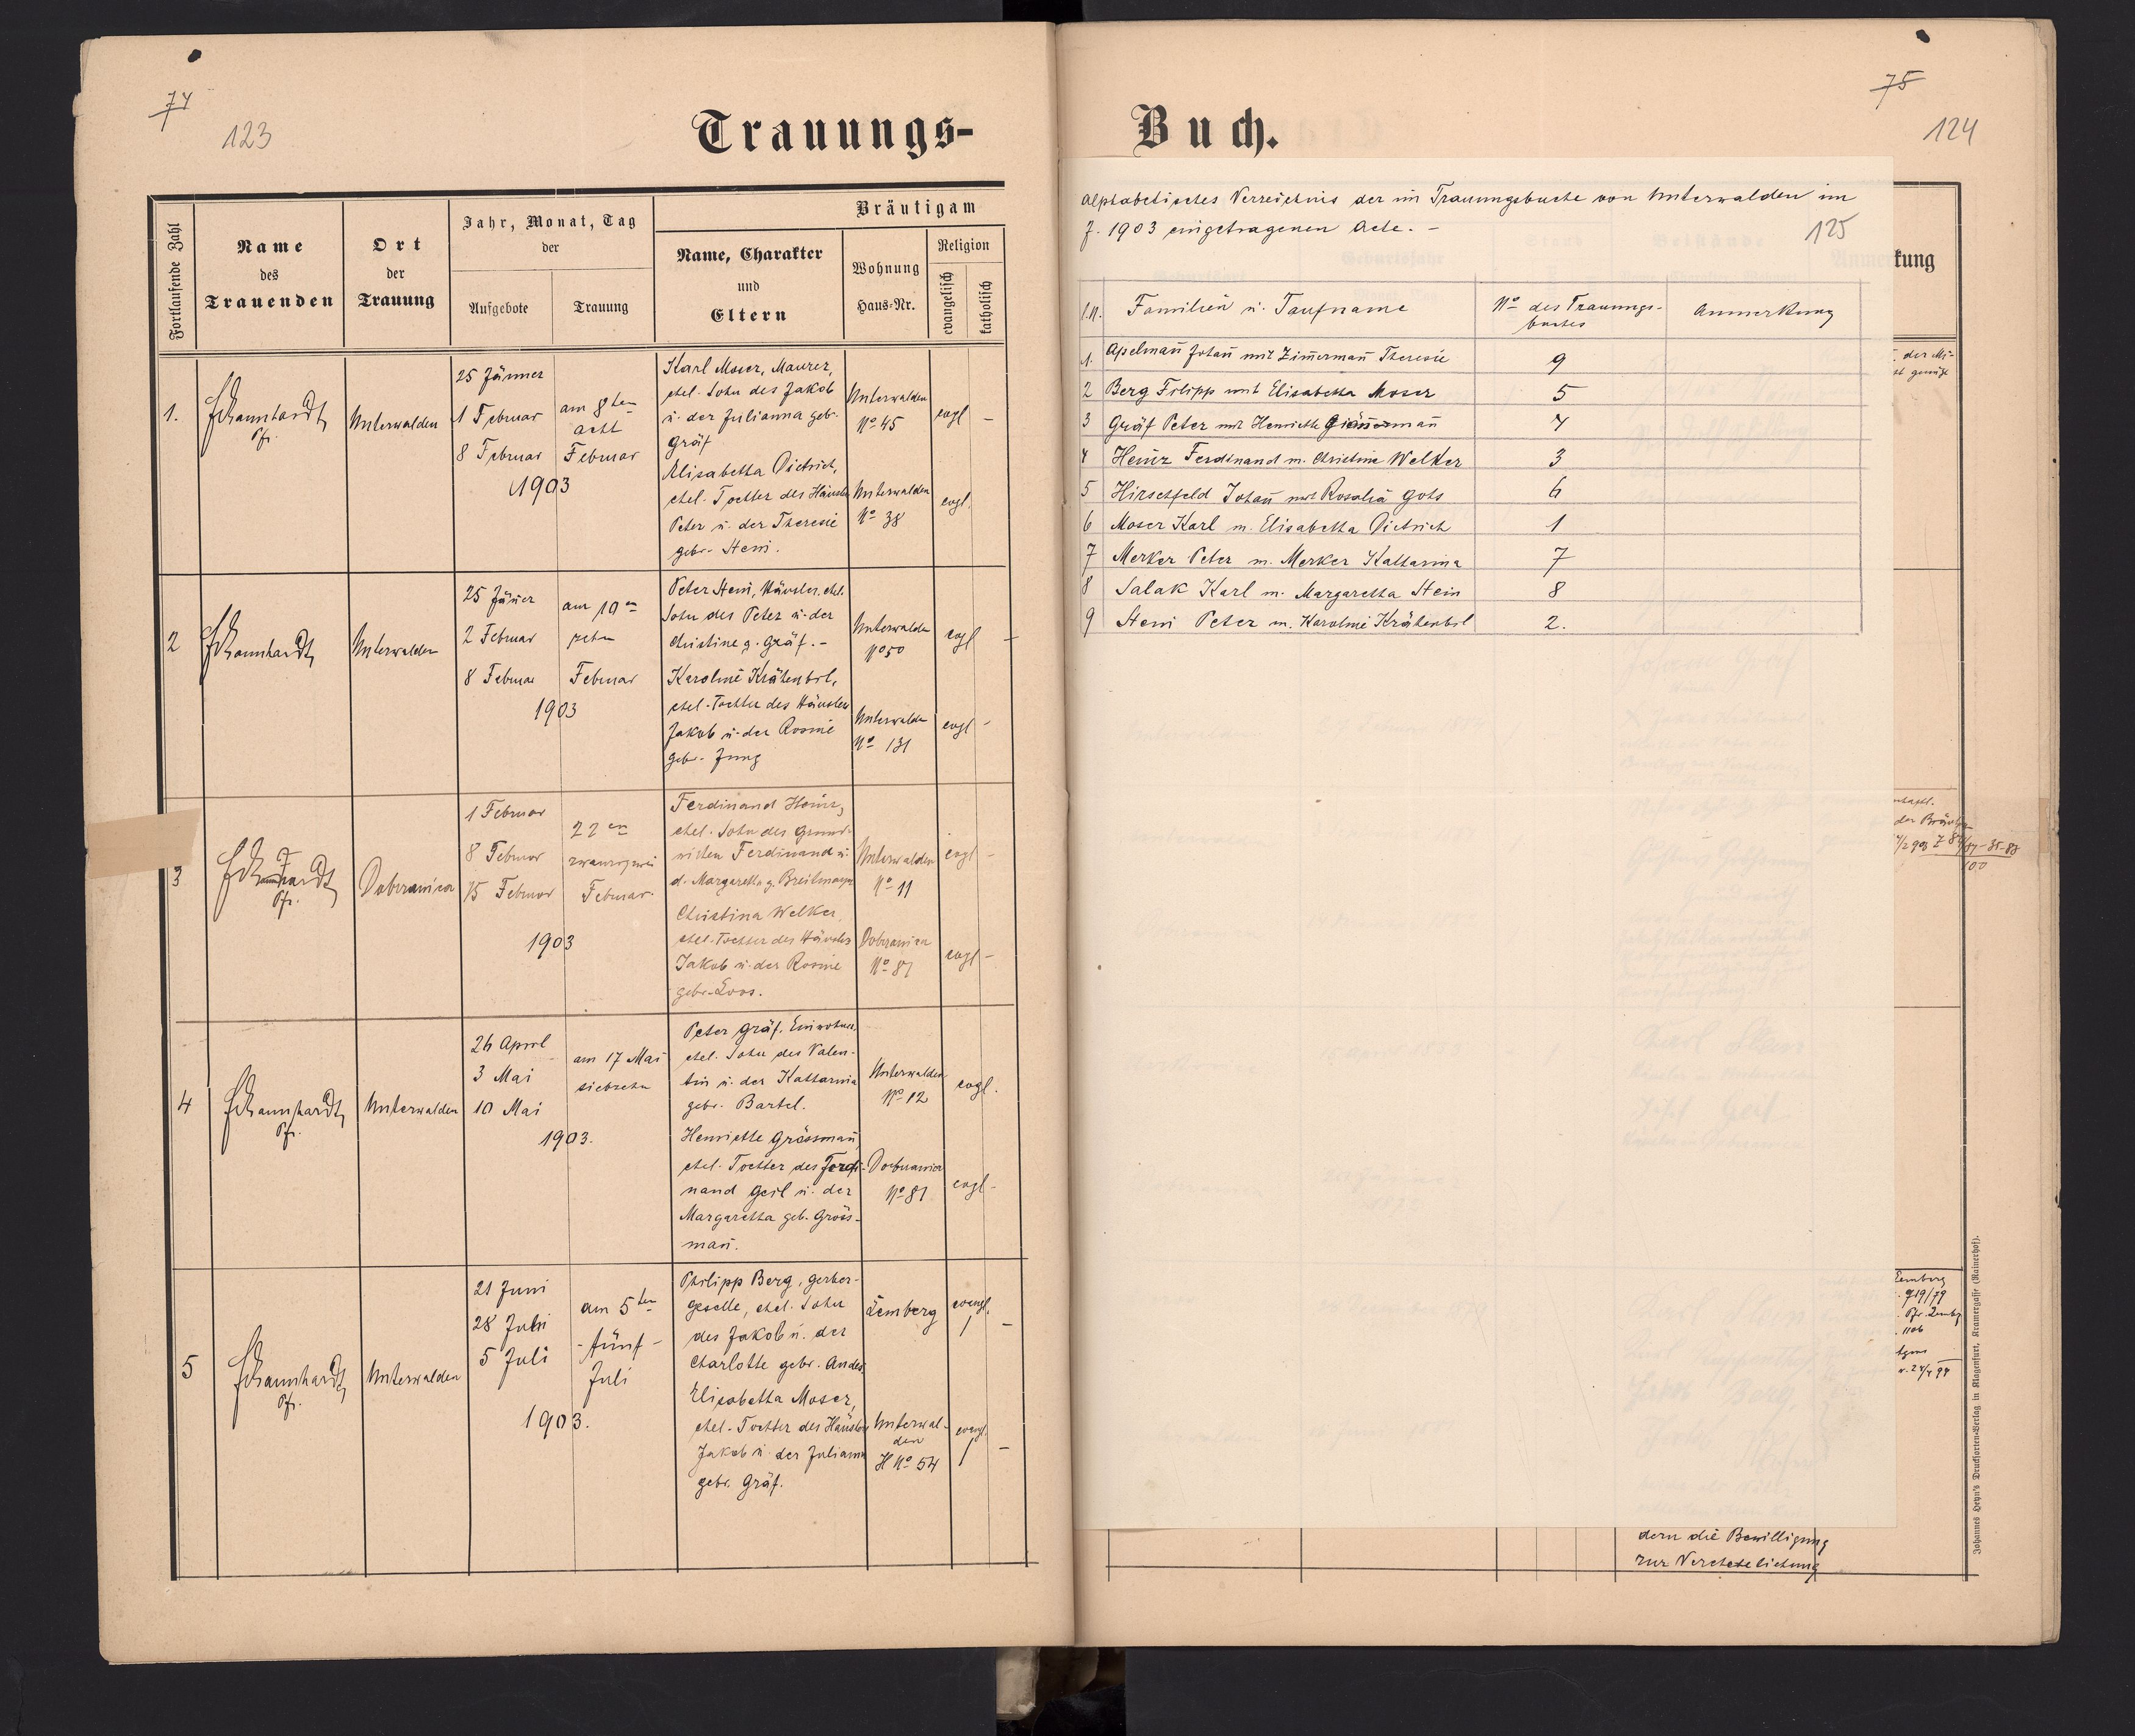 74
123
Trauungs-
Fortlaufende Zahl
Name
des
Trauenden
Ort
der
Trauung
Jahr, Monat, Tag
der
Aufgebote
Trauung
Bräutigam
Name, Charakter
und
Eltern
Wohnung
Haus-Nr.
Religion
evangelisch
katholisch
1.
Pfr.
Unterwalden
25 Jänner
1 Februar
8 Februar
am 8ten
acht
Februar
1903
Karl Moser, Maurer,
ehel. Sohn des Jakob
u. der Julianna geb.
Gräf
Unterwalden
No 45
evgl –
Elisabetha Dietrich,
ehel. Tochter des Häusler
Peter u. der Theresie
gebr. Stein.
Unterwalden
No 38
evgl.
2
Unterwalden
25 Jäner
2 Februar
8 Februar
am 10en
zehn
Februar
1903
Peter Stein, Häusler, ehel.
Sohn des Peter u. der
Christine g. Gräf. –
Unterwalden
No 50
evgl –
Karoline Krähenbil,
ehel. Tochter des Häusler
Jakob u. der Rosine
gebr. Jung
Unterwalden
No 131
evgl –
3
Pfr.
Dobrzanica
1 Februar
8 Februar
15 Februar
22en
zwanzigzwei
Februar
1903
Ferdinand Heinz,
ehel. Sohn des Grund-
wirten Ferdinand u.
d. Margaretha g. Breitmayer
Unterwalden
No 11
evgl –
Christina Welker,
ehel. Tochter des Häusler
Jakob u. der Rosine
gebr. Loos.
Dobrzanica
No 81
evgl –
4
Pfr.
Unterwalden
26 April
3 Mai
10 Mai
am 17 Mai
siebzehn
1903.
Peter Gräf, Einwohner,
ehel. Sohn des Valen-
tin u. der Katharina
gebr. Bartel.
Unterwalden
No 12
evgl.
Henriette Grössmañ
ehel. Tochter des Ferdi-
nand Geil u. der
Margaretha geb. Gröss-
mañ.
Dobrzanica
No 81
evgl –
5
Pfr.
Unterwalden
21 Juni
28 Juli
5 Juli
am 5ten
- fünf -
Juli
1903.
Philipp Berg, Gerber-
geselle, ehel. Sohn
des Jakob u. der
Charlotte gebr. Andes,
Lemberg
evangl. –
Elisabetha Moser,
ehel. Tochter des Häusler
Jakob u. der Julianna
gebr. Gräf.
Unterwal-
den
H No 54
evangl. –
75
124
Buch.
Alphabetisches Verzeichnis der im Trauungsbuche von Unterwalden im
J. 1903 eingetragenen Acte. –
125
l.N. Familien u. Taufname No des Trauungs- Anmerkung
buches
1. Apelmañ Johañ mit Zimermañ Theresie 9
2 Berg Filipp mit Elisabetha Moser 5
3 Gräf Peter mit Henriette 4
4 Heinz Ferdinand m. Christine Welker 3
5 Hirschfeld Johañ mit Rosalia Gots 6
6 Moser Karl m. Elisabetha Dietrich 1
7 Merker Peter m. Merker Katharina 7
8 Salak Karl m. Margaretha Stein 8
9 Stein Peter m. Karoline Krähenbil 2.
kung
der Mi-
Lemberg
719/79
Pfr. Lemberg
1106
dern die Bewilligung
zur Verehelichung
Johannes Heyn's Drucksorten-Verlag in Klagenfurt, Kramergasse (Rainerhof).